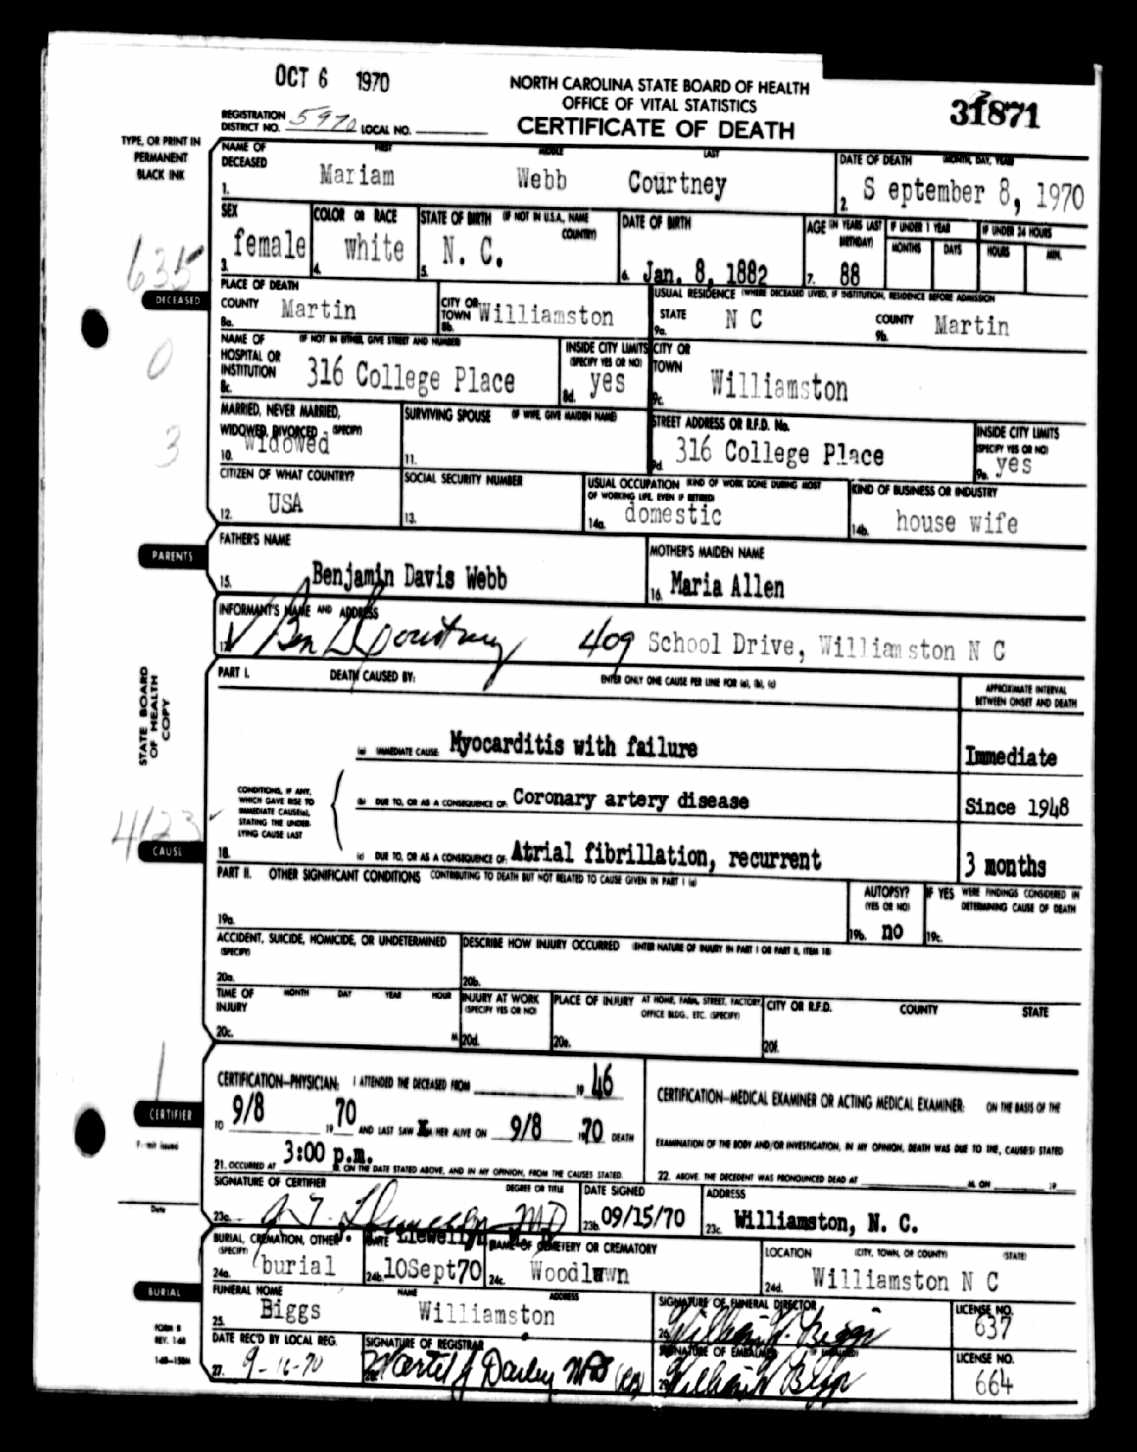 OCT 6 1970
NORTH CAROLINA STATE BOARD OF HEALTH
OFFICE OF VITAL STATISTICS
CERTIFICATE OF DEATH
31871
REGISTRATION DISTRICT NO. 5970 LOCAL NO.
TYPE, OR PRINT IN PERMANENT BLACK INK
NAME OF DECEASED FIRST MIDDLE LAST
1. Mariam Webb Courtney
DATE OF DEATH (MONTH, DAY, YEAR)
2. S eptember 8, 1970
SEX
3. female
COLOR OR RACE
4. white
STATE OF BIRTH (IF NOT IN U.S.A., NAME COUNTRY)
5. N. C.
DATE OF BIRTH
6. Jan. 8, 1882
AGE (IN YEARS LAST BIRTHDAY)
7. 88
IF UNDER 1 YEAR
MONTHS DAYS
IF UNDER 24 HOURS
HOURS MIN.
635
DECEASED
0
3
PLACE OF DEATH
COUNTY
8a. Martin
CITY OR TOWN
8b. Williamston
USUAL RESIDENCE (WHERE DECEASED LIVED, IF INSTITUTION, RESIDENCE BEFORE ADMISSION
STATE
9a. N C
COUNTY
9b. Martin
NAME OF HOSPITAL OR INSTITUTION (IF NOT IN EITHER, GIVE STREET AND NUMBER
8c. 316 College Place
INSIDE CITY LIMITS (SPECIFY YES OR NO)
8d. yes
CITY OR TOWN
9c. Williamston
MARRIED, NEVER MARRIED, WIDOWED, DIVORCED (SPECIFY)
10. widowed
SURVIVING SPOUSE (IF WIFE, GIVE MAIDEN NAME)
11.
STREET ADDRESS OR R.F.D. No.
9d. 316 College Place
INSIDE CITY LIMITS (SPECIFY YES OR NO)
9e. yes
CITIZEN OF WHAT COUNTRY?
12. USA
SOCIAL SECURITY NUMBER
13.
USUAL OCCUPATION KIND OF WORK DONE DURING MOST OF WORKING LIFE, EVEN IF RETIRED)
14a. domestic
KIND OF BUSINESS OR INDUSTRY
14b. house wife
PARENTS
FATHER'S NAME
15. Benjamin Davis Webb
MOTHER'S MAIDEN NAME
16. Maria Allen
INFORMANT'S NAME AND ADDRESS
17. Ben D Courtney 409 School Drive, Williamston N C
STATE BOARD OF HEALTH COPY
PART I. DEATH CAUSED BY: ENTER ONLY ONE CAUSE PER LINE FOR (a), (b), (c)
APPROXIMATE INTERVAL BETWEEN ONSET AND DEATH
(a) IMMEDIATE CAUSE: Myocarditis with failure Immediate
CONDITIONS, IF ANY, WHICH GAVE RISE TO IMMEDIATE CAUSE(a), STATING THE UNDERLYING CAUSE LAST
(b) DUE TO, OR AS A CONSEQUENCE OF: Coronary artery disease Since 1948
4123
CAUSE
18. (c) DUE TO, OR AS A CONSEQUENCE OF: Atrial fibrillation, recurrent 3 months
PART II. OTHER SIGNIFICANT CONDITIONS CONTRIBUTING TO DEATH BUT NOT RELATED TO CAUSE GIVEN IN PART I (a)
19a.
AUTOPSY? (YES OR NO)
19b. no
IF YES WERE FINDINGS CONSIDERED IN DETERMINING CAUSE OF DEATH
19c.
ACCIDENT, SUICIDE, HOMICIDE, OR UNDETERMINED (SPECIFY)
20a.
DESCRIBE HOW INJURY OCCURRED (ENTER NATURE OF INJURY IN PART I OR PART II, ITEM 18)
20b.
TIME OF INJURY MONTH DAY YEAR HOUR
20c. M.
INJURY AT WORK (SPECIFY YES OR NO)
20d.
PLACE OF INJURY AT HOME, FARM, STREET, FACTORY, OFFICE BLDG., ETC. (SPECIFY)
20e.
CITY OR R.F.D. COUNTY STATE
20f.
1
CERTIFIER
CERTIFICATION—PHYSICIAN: I ATTENDED THE DECEASED FROM 19 46
TO 9/8 19 70 AND LAST SAW HER ALIVE ON 9/8 1970 DEATH
21. OCCURRED AT 3:00 p.m. ON THE DATE STATED ABOVE, AND IN MY OPINION, FROM THE CAUSES STATED.
CERTIFICATION—MEDICAL EXAMINER OR ACTING MEDICAL EXAMINER: ON THE BASIS OF THE
EXAMINATION OF THE BODY AND/OR INVESTIGATION, IN MY OPINION, DEATH WAS DUE TO THE, CAUSE(S) STATED
22. ABOVE. THE DECEDENT WAS PRONOUNCED DEAD AT M. ON 19
Permit issued
Date
SIGNATURE OF CERTIFIER DEGREE OR TITLE
23a. Llewellyn MD
Llewellyn
DATE SIGNED
23b. 09/15/70
ADDRESS
23c. Williamston, N. C.
BURIAL
BURIAL, CREMATION, OTHER (SPECIFY)
24a. burial
DATE
24b. 10Sept70
NAME OF CEMETERY OR CREMATORY
24c. Woodlawn
LOCATION (CITY, TOWN, OR COUNTY) (STATE)
24d. Williamston N C
FUNERAL HOME NAME ADDRESS
25. Biggs Williamston
SIGNATURE OF FUNERAL DIRECTOR
26. William W. Biggs
LICENSE NO.
637
FORM 8
REV. 1-68
DATE REC'D BY LOCAL REG.
27. 9-16-70
SIGNATURE OF REGISTRAR
SIGNATURE OF EMBALMER
29. William W Biggs
LICENSE NO.
664